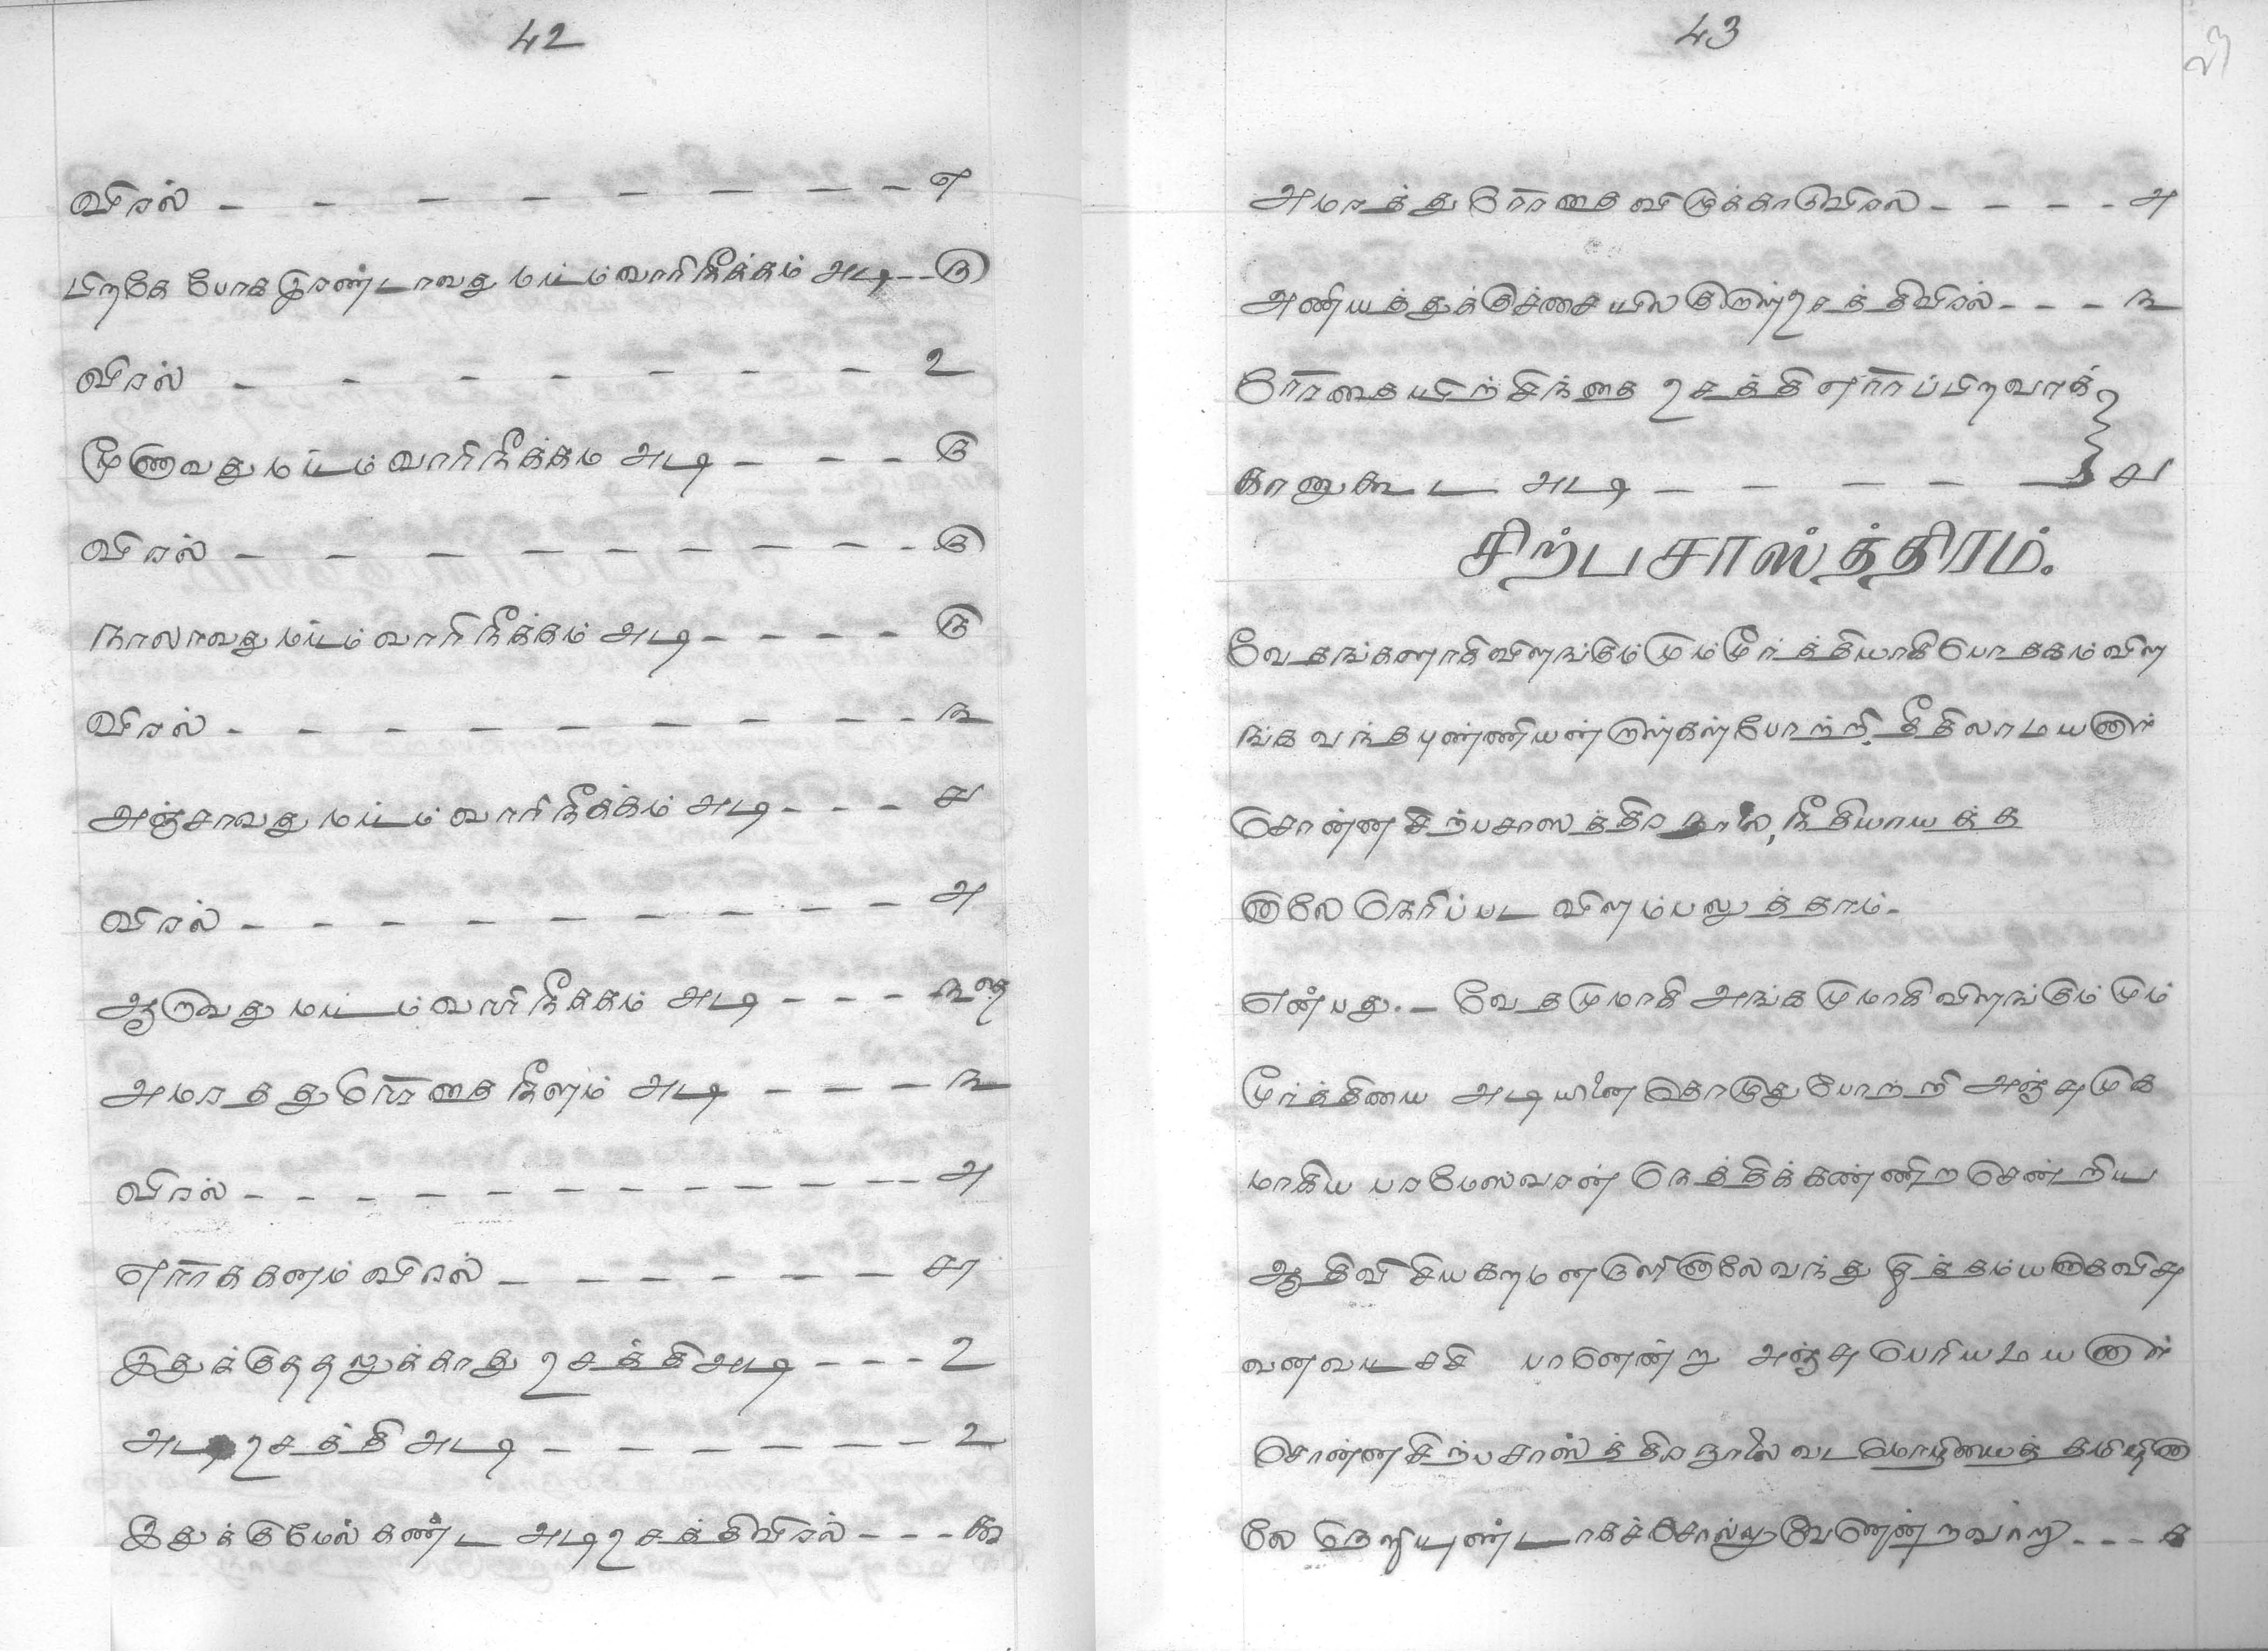 42
விரல் — — — — — — — — எ
பிறகே போக இரண்டாவது மட்டம் வாரிநீக்கம் அடி -- ரு
விரல் — — — — — — — — உ
மூணவது மட்டம் வாரிநீக்கம அடி — — — ரு
விரல் — — — — — — — — ரு
நாலாவது மட்டம் வாரிநீக்கம் அடி — — — — ரு
விரல் — — — — — — — — ௩
அஞ்சாவது மட்டம் வாரிநீக்கம் அடி — — — ௪
விரல் — — — — — — — — அ
ஆறுவது மட்டம் வாரிநீக்கம் அடி — — — ௩
அமரதது நீளம் அடி — — — ௩
விரல் — — — — — — — — அ
ஏராக்கனம் விரல் — — — — — — —
இதுக்கு உசத்தி அடி — — — உ
அடி உசத்தி அடி — — — — — — உ
இதுக்கு மேல் கண்ட அடி உசத்தி விரல் — — — ௯
43
அமரத்து விரல — — — — அ
அணியத்துக்கு உசத்திவிரல் — — — ௩
உசத்தி ஏராப்பிறவாக்
கானுகூட அடி — — — — — ௪
சிற்பசாஸ்த்திரம்.
வேதங்களாகி விளங்கும் மும்மூர்த்தியாகி போதகம் விள
ங்க வந்த புண்ணியன் றாள்கள் போற்றி, தீதிலா மயனார்
சொன்ன சிற்பசாஸத்திர நூலை, நீதியாயத்த
னாலே நெரிப்பட விளம்பலுத்தாம்-
என்பது. — வேதமுமாகி அங்கமுமாகி விளங்கும் மும்
மூர்த்தியை அடியினை தொழுது போற்றி அஞ்சுமுக
மாகிய பரமேஸ்வரன் நெத்திக்கண்ணிற சென்றிய
ஆதிவி வந்து
யானென்று அஞ்சு பெரிய மயனார்
சொன்ன சிற்பசாஸ்த்திர நூலை வடமொழியைத் தமிழின
லே நெறியுண்டாகச் சொல்லுவேனென்றவாறு - - - ௧